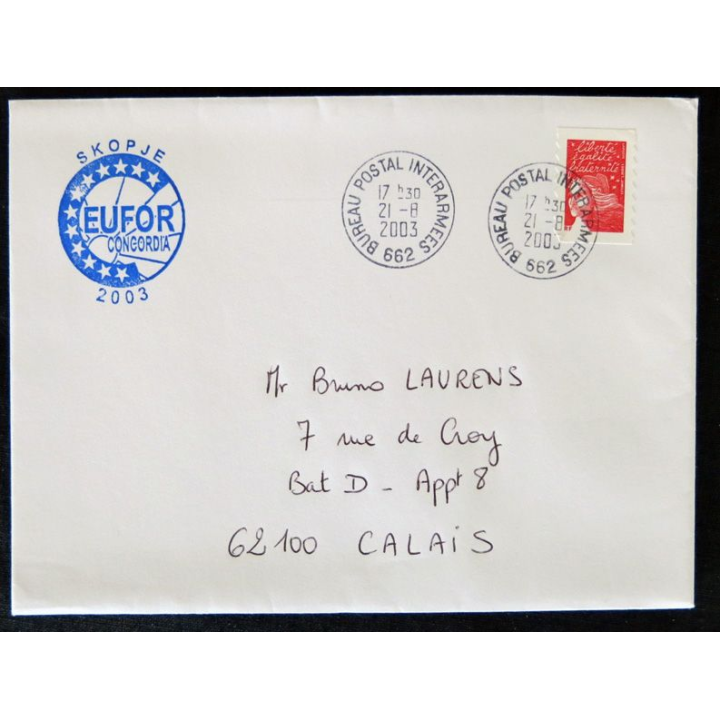 SKOPJE
EUFOR
CONCORDIA
2003
BUREAU POSTAL INTERARMEES
17 h30
21 -8
2003
662
BUREAU POSTAL INTERARMEES
17 h30
21 -8
2003
662
liberté,
égalité,
fraternité
Mr Bruno LAURENS
7 rue de Croy
Bat D - Appt 8
62100 CALAIS